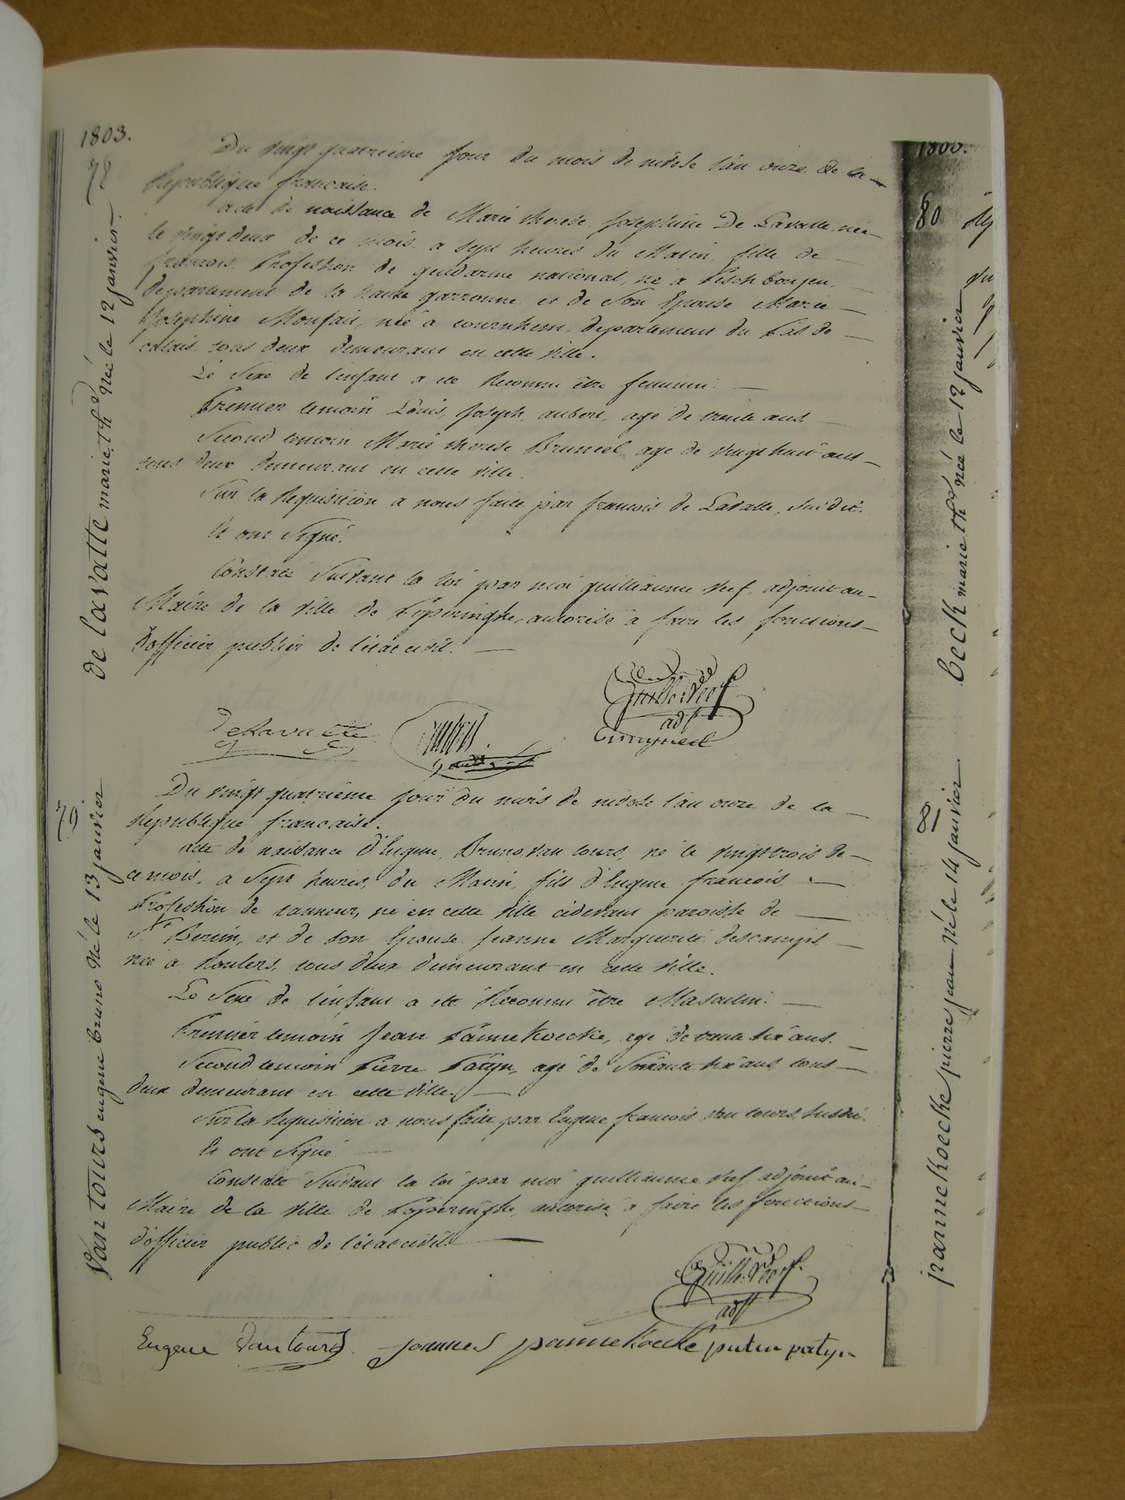 1803.
78
de lavatte marie. th. Née le 12 janvier
Du vingt quatrieme jour du mois de nivose l'an onze de la
Republique francaise.
acte de naissance de Marie therese Josephine De Lavatte, née
le vingt deux de ce mois a sept heures du Matin, fille de
francois, Profession de gendarme national, né a
departement de la haute garronne et de son Epouse Marie
Josephine Monfait, née a departement du Pas de
calais, tous deux demeurant en cette ville.
Le Sexe de l'enfant a eté Reconnu être feminin.
Premier temoin Louis, Joseph, aubert, agé de trente ans
Second temoin Marie therese Bruneel, agé de vingt huit ans
tous deux demeurant en cette ville.
Sur la Requisition a nous faite par francois de Lavatte, susdit.
Et ont Signé.
Constaté Suivant la loi par moi guilliaume Verf, adjoint au
Maire de la Ville de Poperinghe, autorisé a faire les fonctions
d'officier public de l'état civil.
DeLavatte
adjt
79
Van tours eugene bruno Né le 13 janvier
Du vingt quatrième jour du mois de nivose l'an onze de la
Republique francaise.
acte de naissance d'Eugene, Bruno, van tours, né le vingt trois de
ce mois, a Sept heures, du Matin, fils d'Eugene francois
Profession de tanneur, né en cette ville cidevant paroisse de
St Bertin, et de son Epouse Jeanne Marguerite descamps
née a Roulers, tous deux demeurant en cette Ville.
Le Sexe de l'enfant a eté Reconnu être Masculin.
Premier temoin Jean Pannekoecke, agé de trente six ans.
Second temoin Pierre Patyn, agé de Soixante six ans tous
deux demeurant en cette ville.
Sur la Requisition a nous faite par Eugene francois van tours susdit.
Et ont Signé
Constaté Suivant la loi par moi guilliaume Verf adjoint au
Maire de la Ville de Poperinghe, autorisé a faire les fonctions
d'officier public de l'état civil
adjt
Eugene Vantours joannes pannekoecke pieter patyn
80
beck marie th. Née le 12 janvier
81
pannekoecke pierre jean Né le 14 janvier